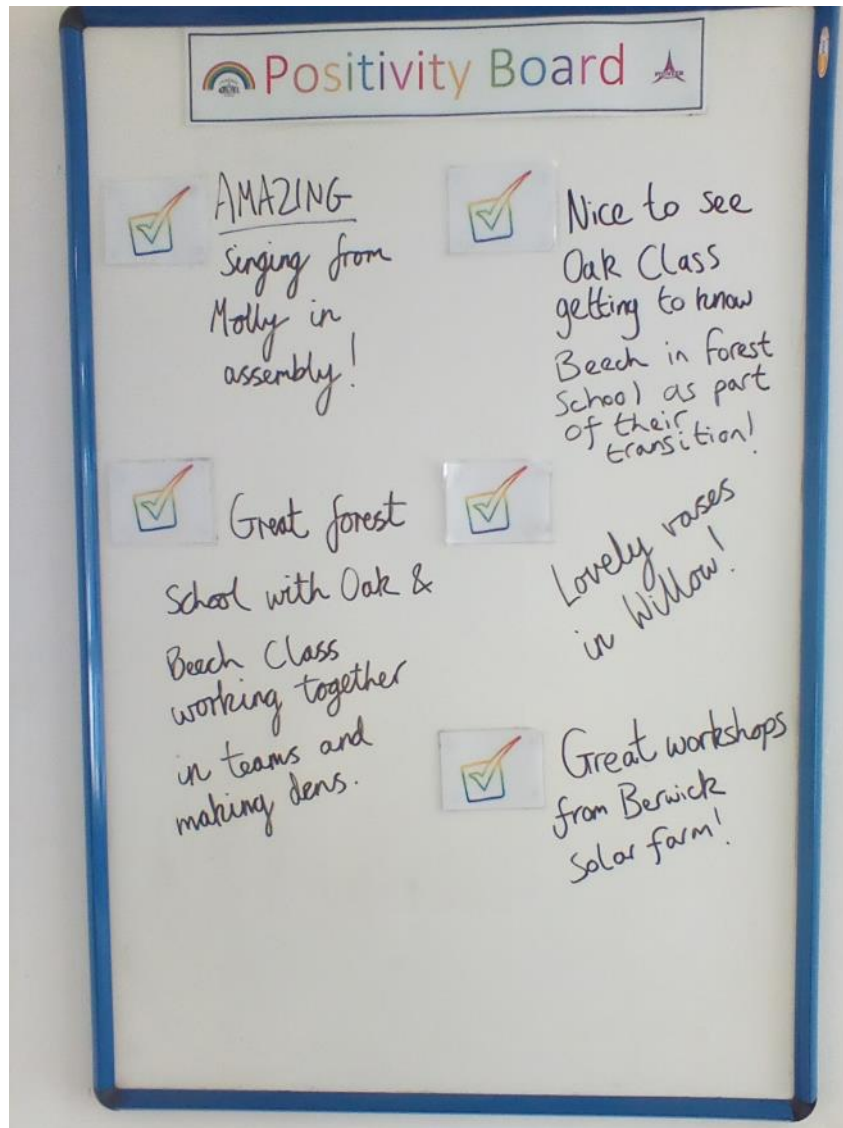 Positivity Board
AMAZING
Singing from
Molly in
assembly!
Great forest
School with Oak &
Beech Class
working together
in teams and
making dens.
Nice to see
Oak Class
getting to know
Beech in forest
School as part
of their
transition!
Lovely vases
in Willow!
Great workshops
from Berwick
Solar farm!